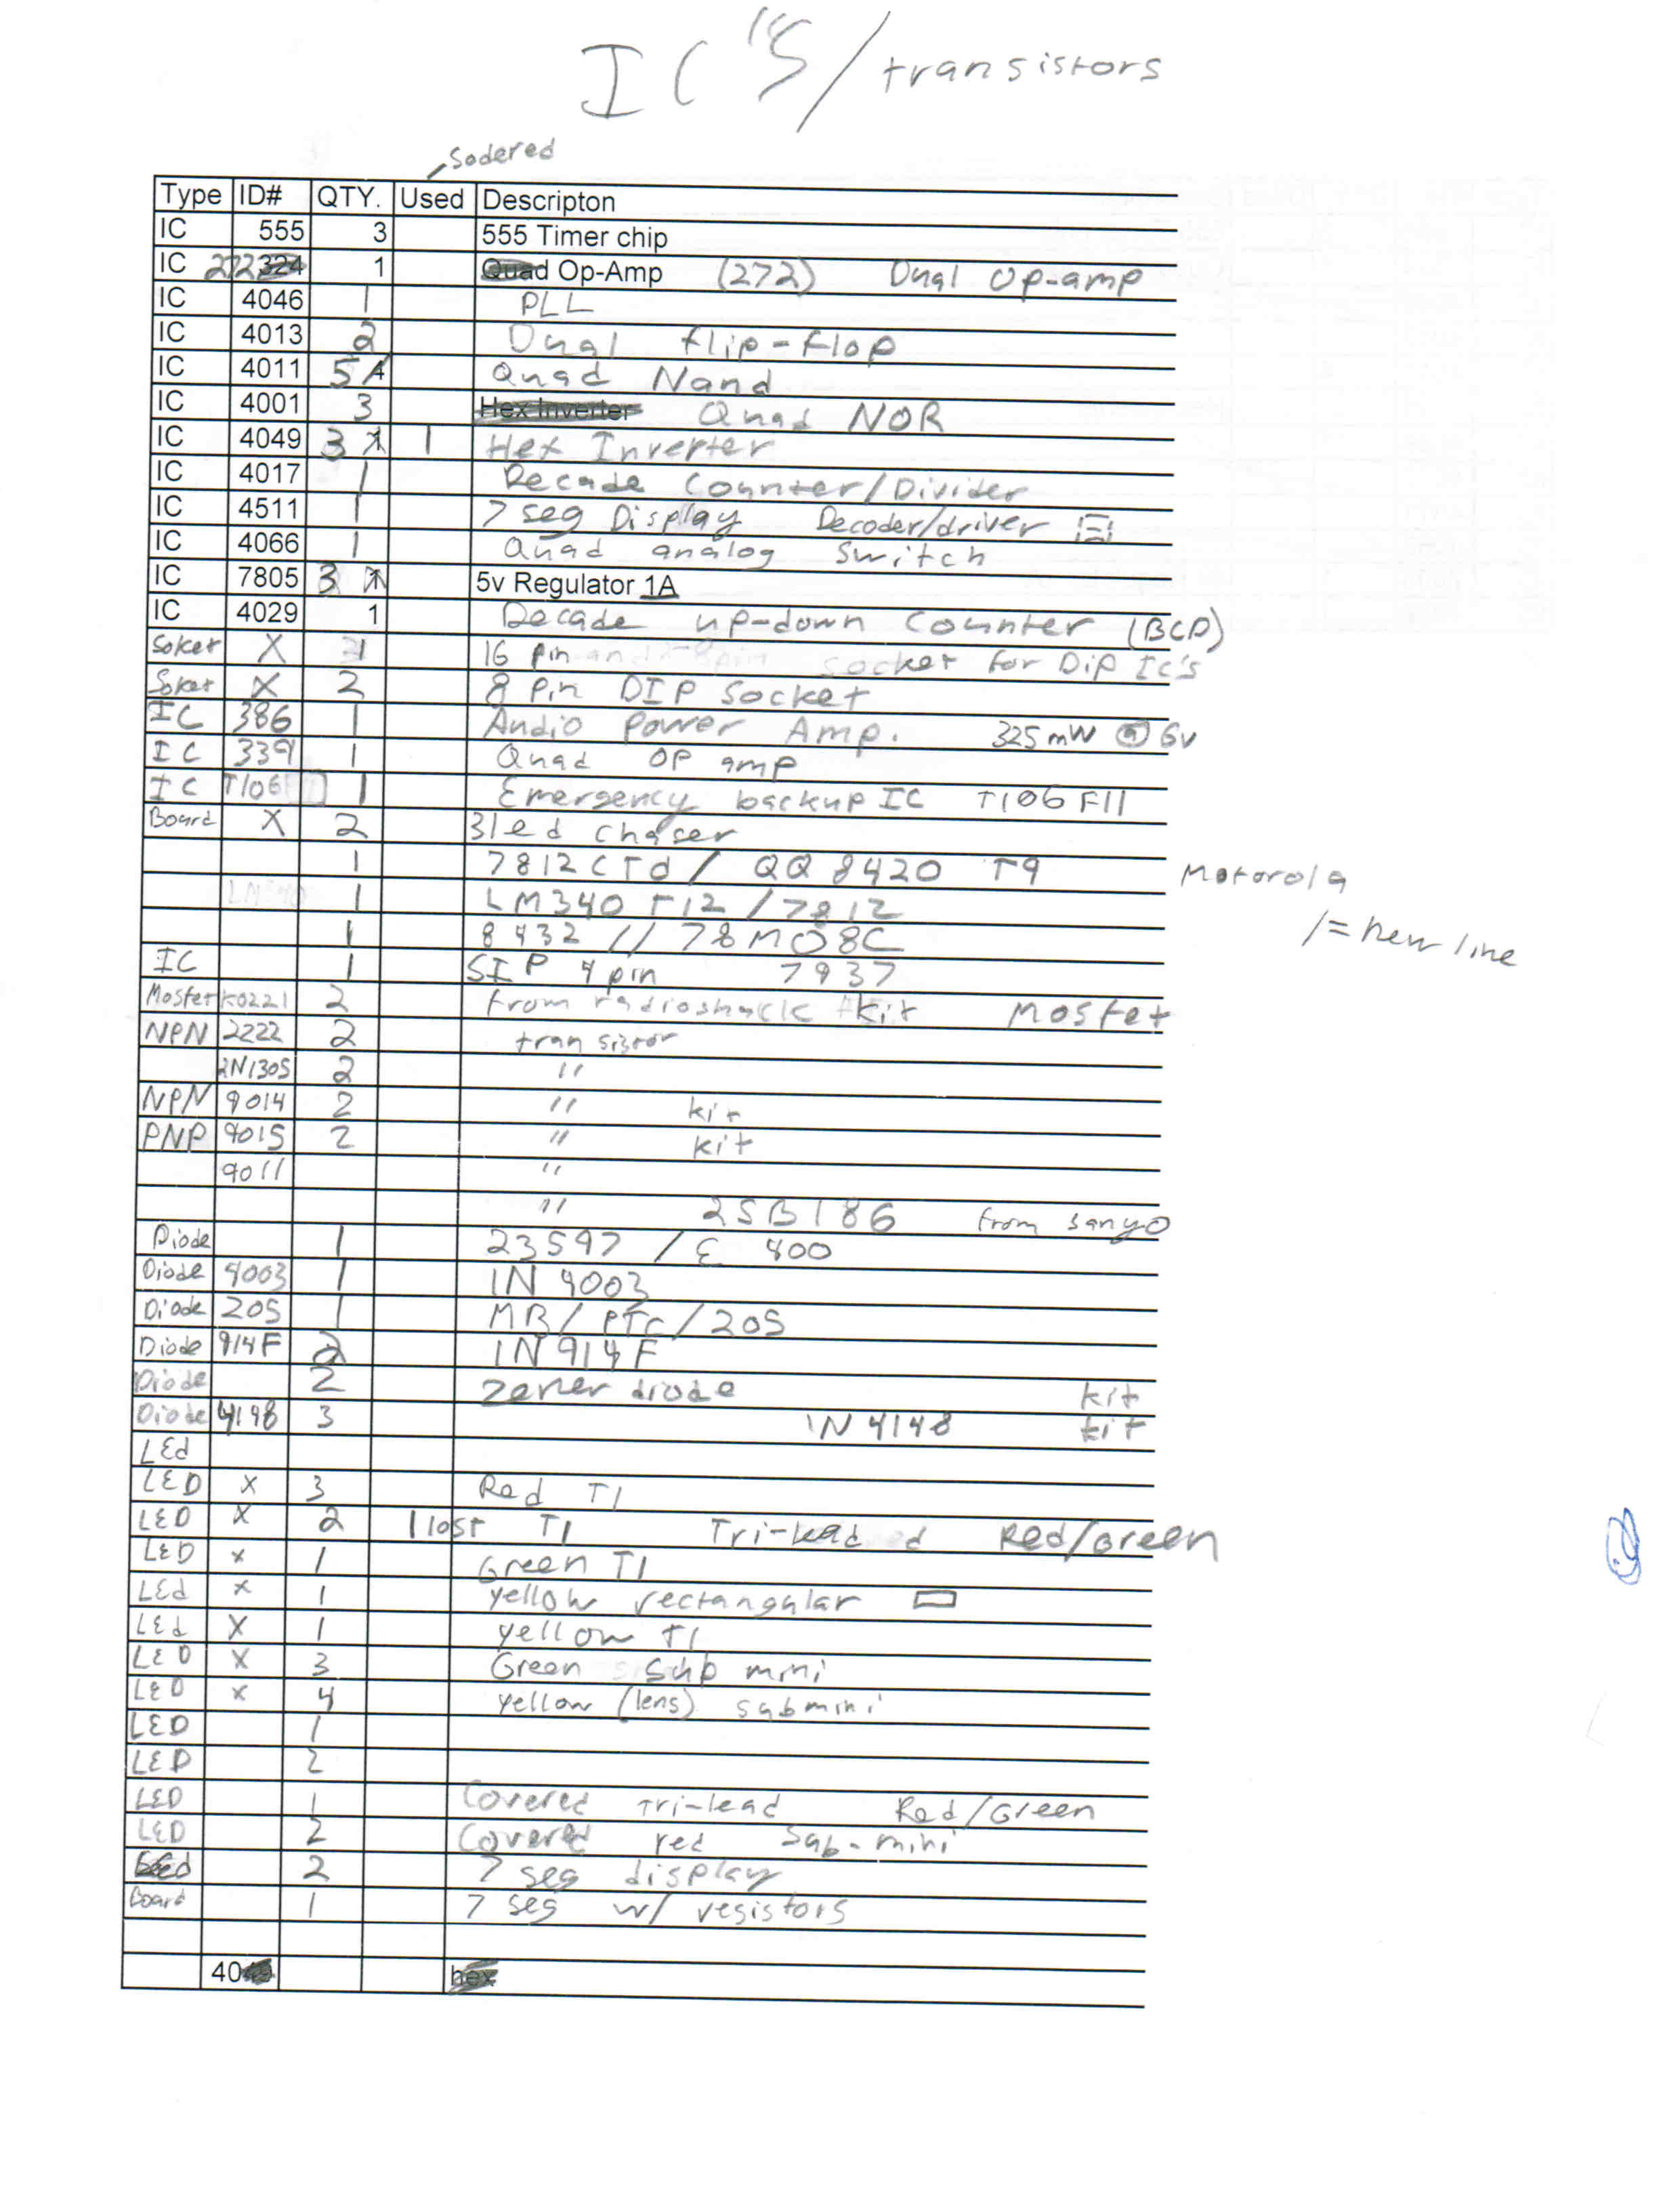 IC's/transistors
Sodered
Type ID# QTY. Used Descripton
IC 555 3 555 Timer chip
IC 272 1 Op-Amp (272) Dual Op-amp
IC 4046 1 PLL
IC 4013 2 Dual flip-flop
IC 4011 5 Quad Nand
IC 4001 3 Hex Inverter Quad NOR
IC 4049 3 1 Hex Inverter
IC 4017 1 Decade Counter/Divider
IC 4511 1 7 seg Display Decoder/driver
IC 4066 1 Quad analog switch
IC 7805 3 5v Regulator 1A
IC 4029 1 Decade up-down Counter (BCD)
Soket X 1 16 pin socket for Dip Ic's
Soket X 2 8 Pin DIP Socket
IC 386 1 Audio Power Amp. 325mW @ 6v
IC 339 1 Quad OP amp
IC T106 1 Emergency backup IC T106F11
Board X 2 3led chaser
1 7812CTd / QQ 8420 T9 Motorola
1 LM340 T12 / 7812
/= new line
1 8432 // 78M08C
IC 1 SIP 4 pin 7937
Mosfet K0221 2 from radioshack kit Mosfet
NPN 2222 2 transistor
2N1305 2 "
NPN 9014 2 " kit
PNP 9015 2 " kit
9011 "
" 2SB186 from sanyo
Diode 1 23597 / E 400
Diode 4003 1 1N 4003
Diode 205 1 MB/ PTC/205
Diode 914F 2 1N914F
Diode 2 Zener diode kit
Diode 4148 3 1N4148 kit
LEd
LED X 3 Red T1
LED X 2 1 lost T1 Tri-lead Red/Green
LED x 1 Green T1
LEd x 1 yellow rectangular
LEd X 1 yellow T1
LED X 3 Green Sub mini
LED x 4 yellow (lens) submini
LED 1
LED 2
LED 1 Covered tri-lead Red/Green
LED 2 Covered red Sub-mini
2 7 seg display
Board 1 7 seg w/ resistors
40 hex